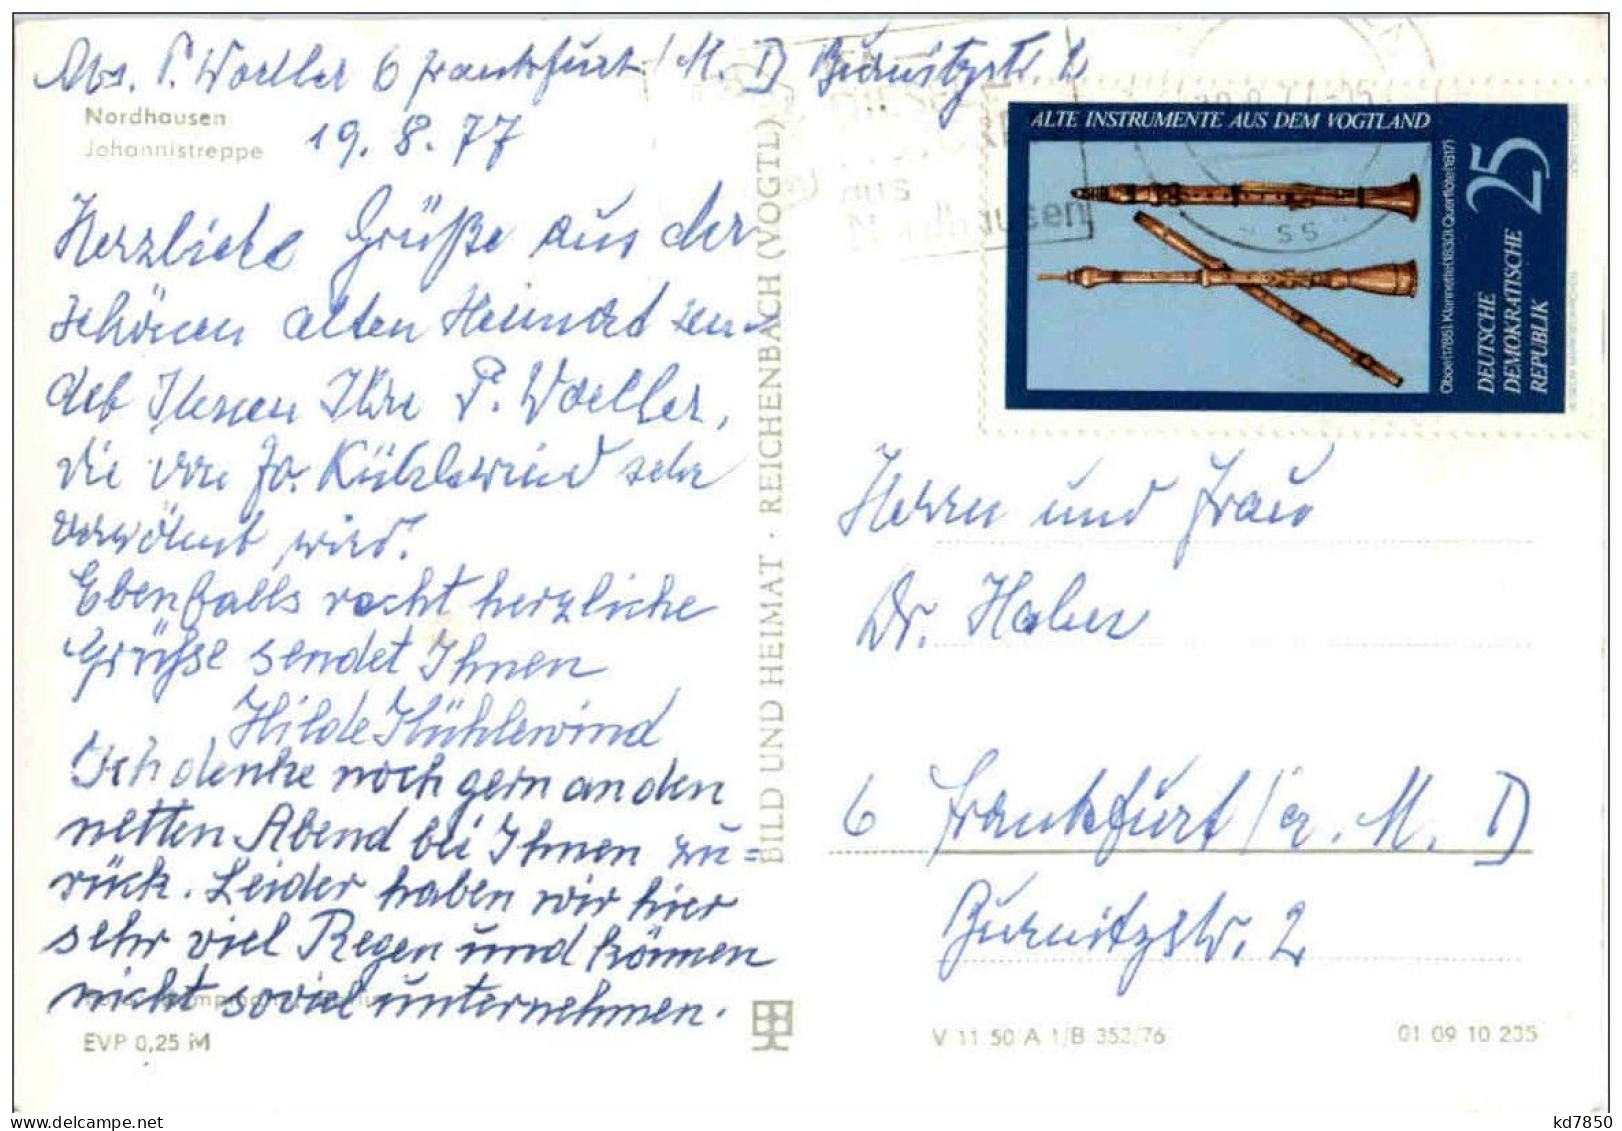 Abs. P. Woeller 6 Frankfurt/M. 1) Burnitzstr. 2
Nordhausen
Johannistreppe
19. 8. 77
Herzliche Grüße aus der
schönen alten Heimat sen-
det Ihnen Ihre P. Woeller,
die von Fr. Kühlewind sehr
verwöhnt wird.
Ebenfalls recht herzliche
Grüsse sendet Ihnen
Hilde Kühlewind
Ich denke noch gern an den
netten Abend bei Ihnen zu=
rück. Leider haben wir hier
sehr viel Regen und können
nicht soviel unternehmen.
EVP 0,25 M
BILD UND HEIMAT · REICHENBACH (VOGTL)
aus
Nordhausen
ALTE INSTRUMENTE AUS DEM VOGTLAND
Oboe (1785), Klarinette (1830), Querflöte (1817)
25
DEUTSCHE
DEMOKRATISCHE
REPUBLIK
Herrn und Frau
Dr. Haber
6 Frankfurt/a. M. 1)
Burnitzstr. 2
V 11 50 A 1/B 352/76
01 09 10 235
kd7850